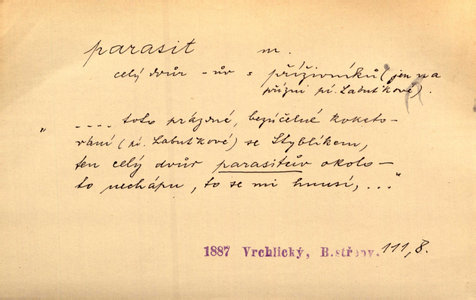 parasit m.
celý dvůr -ův = příživníků (jen na
přízni pí. Labuťkové).
„.... toto prázdné, bezúčelné koketo-
vání (pí. Labuťkové) se Styblíkem,
ten celý dvůr parasitův okolo-
to nechápu, to se mi hnusí,..."
1887 Vrchlický, B.střepy. 111,8.